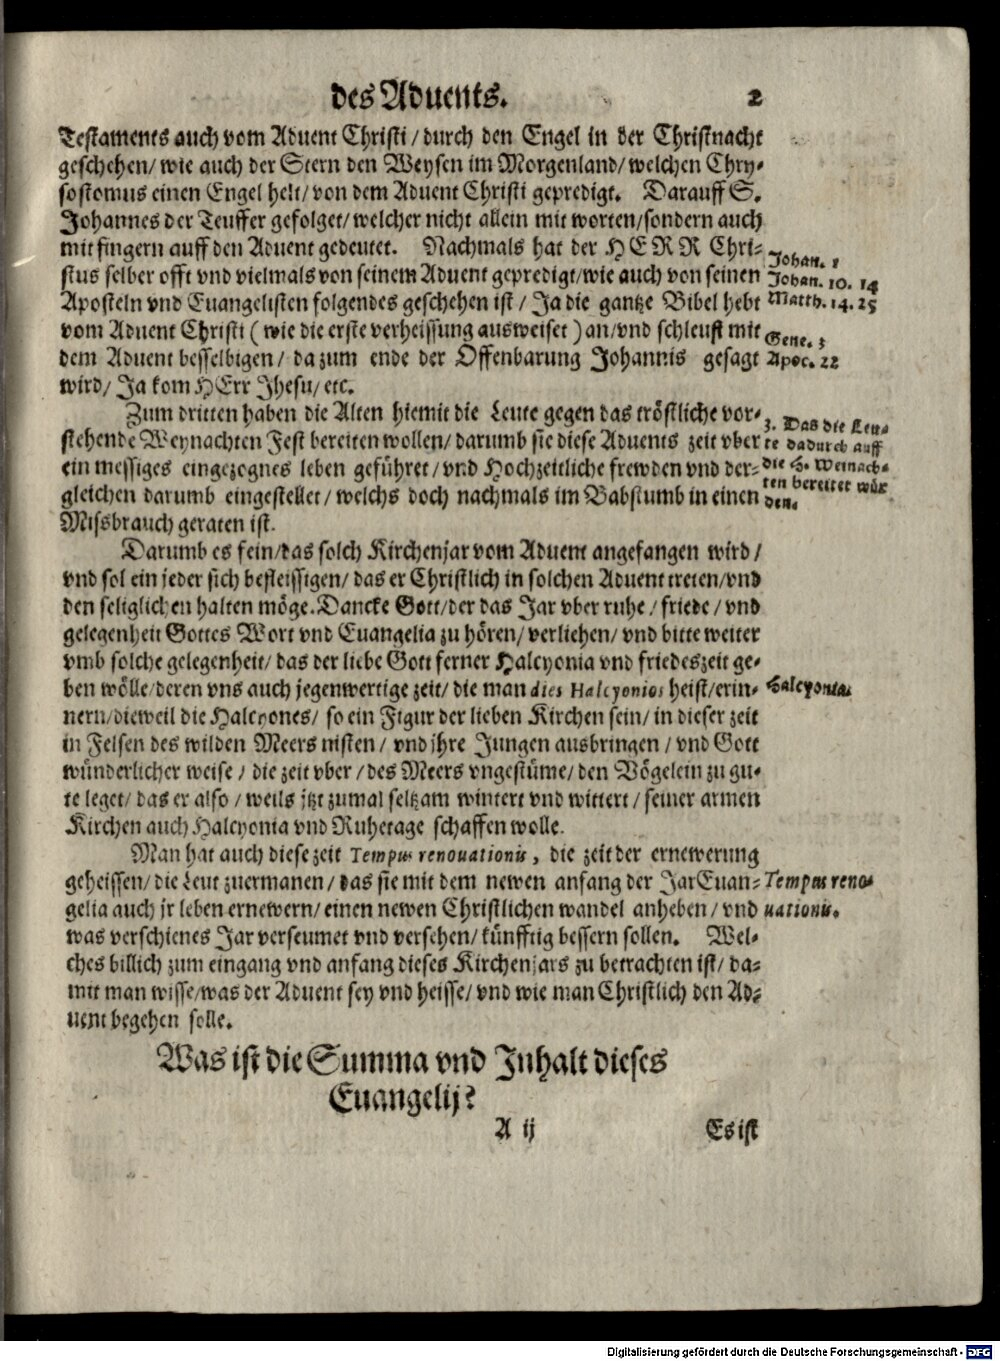 des Aduents.
2
Testaments auch vom Aduent Christi / durch den Engel in der Christnacht
geschehen / wie auch der Stern den Weysen im Morgenland / welchen Chry-
sostomus einen Engel helt / von dem Aduent Christi gepredigt. Darauff S.
Johannes der Teuffer gefolget / welcher nicht allein mit worten / sondern auch
mit fingern auff den Aduent gedeutet. Nachmals hat der HERR Chri-
stus selber offt vnd vielmals von seinem Aduent gepredigt / wie auch von seinen
Aposteln vnd Euangelisten folgendes geschehen ist / Ja die gantze Bibel hebt
vom Aduent Christi ( wie die erste verheissung ausweiset ) an / vnd schleust mit
dem Aduent desselbigen / da zum ende der Offenbarung Johannis gesagt
wird / Ja kom HErr Jhesu / etc.
Johan. 1
Johan. 10. 14
Matth. 14. 25
Gene. 3
Apoc. 22
Zum dritten haben die Alten hiemit die Leute gegen das tröstliche vor-
stehende Weynachten Fest bereiten wollen / darumb sie diese Aduents zeit vber
ein messiges eingezognes leben geführet / vnd Hochzeitliche frewden vnd der-
gleichen darumb eingestellet / welchs doch nachmals im Babstumb in einen
Missbrauch geraten ist.
3. Das die Leu-
te dadurch auff
die H. Weinach-
ten bereitet wür
den.
Darumb es fein / das solch Kirchenjar vom Aduent angefangen wird /
vnd sol ein jeder sich befleissigen / das er Christlich in solchen Aduent treten / vnd
den seliglichen halten möge. Dancke Gott / der das Jar vber ruhe / friede / vnd
gelegenheit Gottes Wort vnd Euangelia zu hören / verliehen / vnd bitte weiter
vmb solche gelegenheit / das der liebe Gott ferner Halcyonia vnd friedeszeit ge-
ben wölle / deren vns auch jegenwertige zeit / die man dies Halcyonios heist / erin-
nern / dieweil die Halcyones / so ein Figur der lieben Kirchen sein / in dieser zeit
in Felsen des wilden Meers nisten / vnd jhre Jungen ausbringen / vnd Gott
wünderlicher weise / die zeit vber / des Meers vngestüme / den Vögelein zu gu-
te leget / das er also / weils jtzt zumal seltzam wintert vnd wittert / seiner armen
Kirchen auch Halcyonia vnd Ruhetage schaffen wolle.
Halcyonia.
Man hat auch diese zeit Tempus renouationis, die zeit der ernewerung
geheissen / die Leut zuermanen / das sie mit dem newen anfang der Jar Euan-
gelia auch jr leben ernewern / einen newen Christlichen wandel anheben / vnd
was verschienes Jar verseumet vnd versehen / künfftig bessern sollen. Wel-
ches billich zum eingang vnd anfang dieses Kirchenjars zu betrachten ist / da-
mit man wisse / was der Aduent sey vnd heisse / vnd wie man Christlich den Ad-
uent begehen solle.
Tempus reno-
uationis.
Was ist die Summa vnd Inhalt dieses
Euangelij?
A ij
Es ist
Digitalisierung gefördert durch die Deutsche Forschungsgemeinschaft - DFG